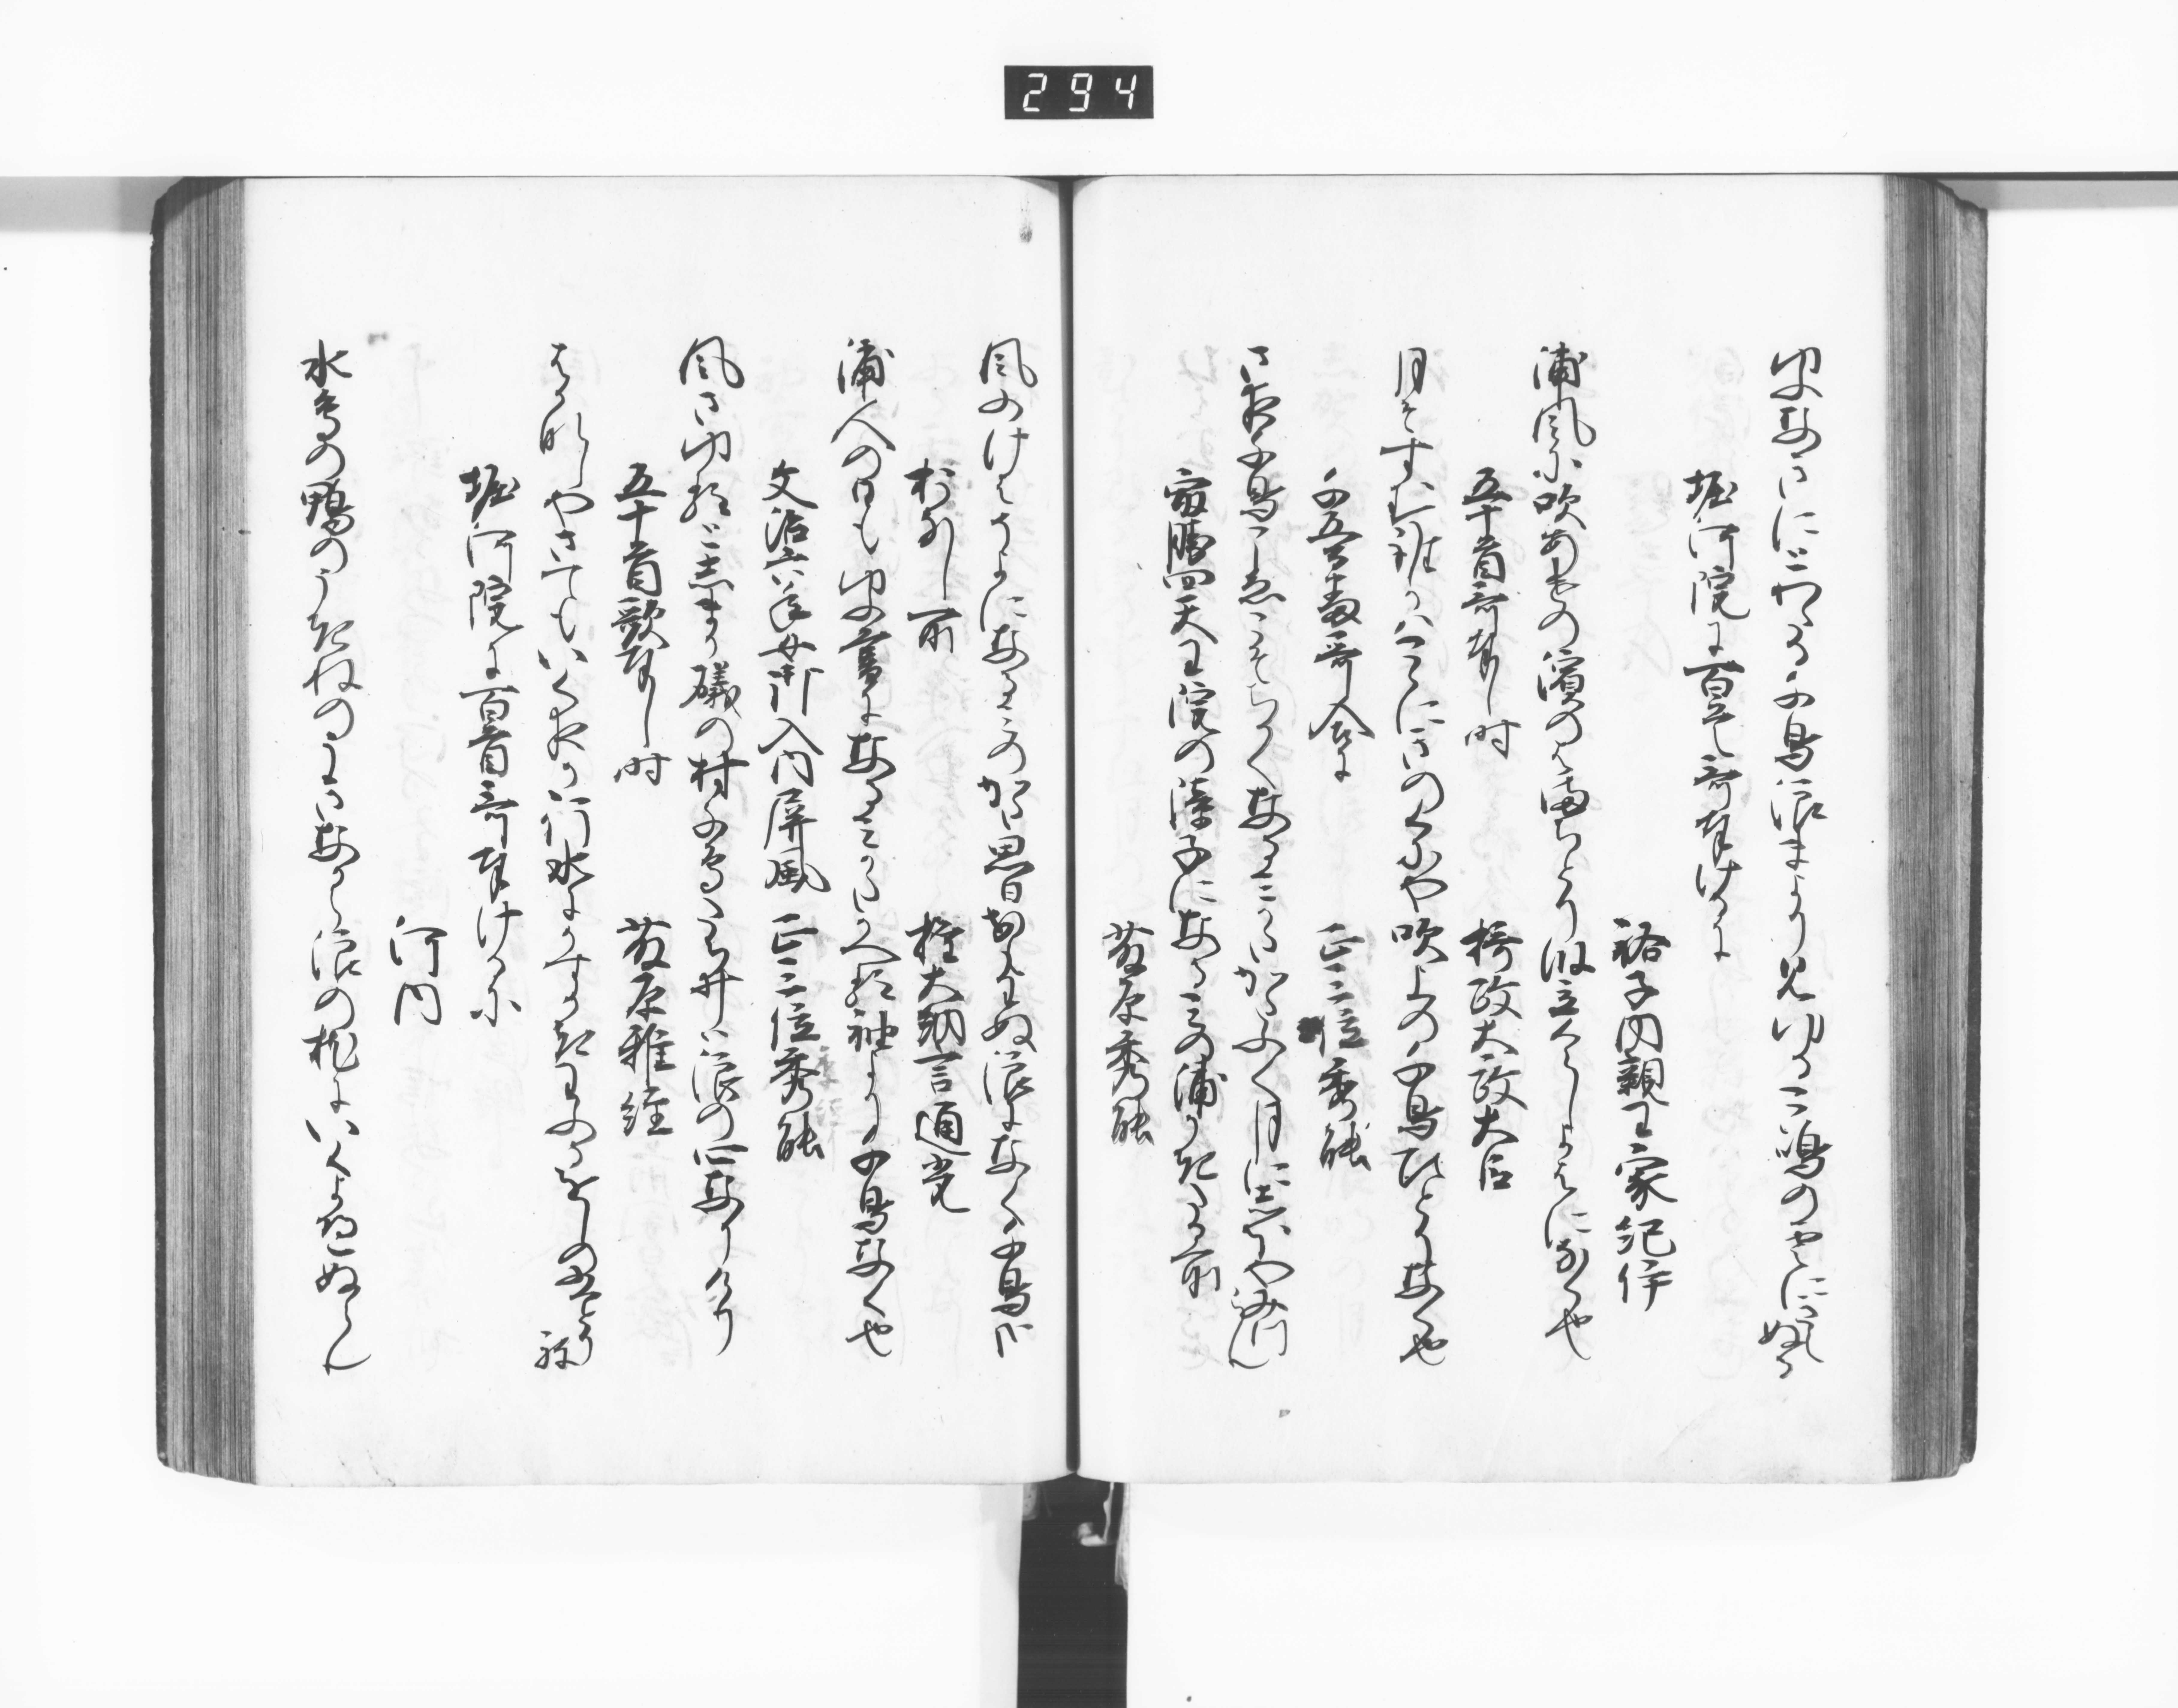 ゆふなきにとわたる千鳥浪まより見ゆるこ嶋の雲に消ぬる
堀河院に百首哥奉けるに
祐子内親王家紀伊
浦風に吹あけの濱のはま千とり浪立くらしよはになく也
五十首哥奉し時
摂政太政大臣
月そすむ誰かはこゝにきのくにや吹上の千鳥ひとりなく也
千五百番哥合に
正三位季能
さ夜千鳥こゑこそちかくなるみかたかたふく月に志ほやみつらん
最勝四天王院の障子になるみの浦かきたる所
藤原秀能
風ふけはよそになるみのかた思日おもはぬ浪になく千鳥かな
おなし所
権大納言通光
浦人の日もゆふ暮になるみかたかへる袖より千鳥なく也
文治六年女御入内屏風
正三位秀能
風さゆるとしまか礒の村千鳥たち井は浪の心なりけり
五十首歌奉し時
藤原雅経
はかなしやさてもいく夜か行水にかすかきわふるをしのひとり祢
堀河院に百首哥奉けるに
河内
水鳥の鴨のうきねのうきなから浪の枕にいくよねぬらん